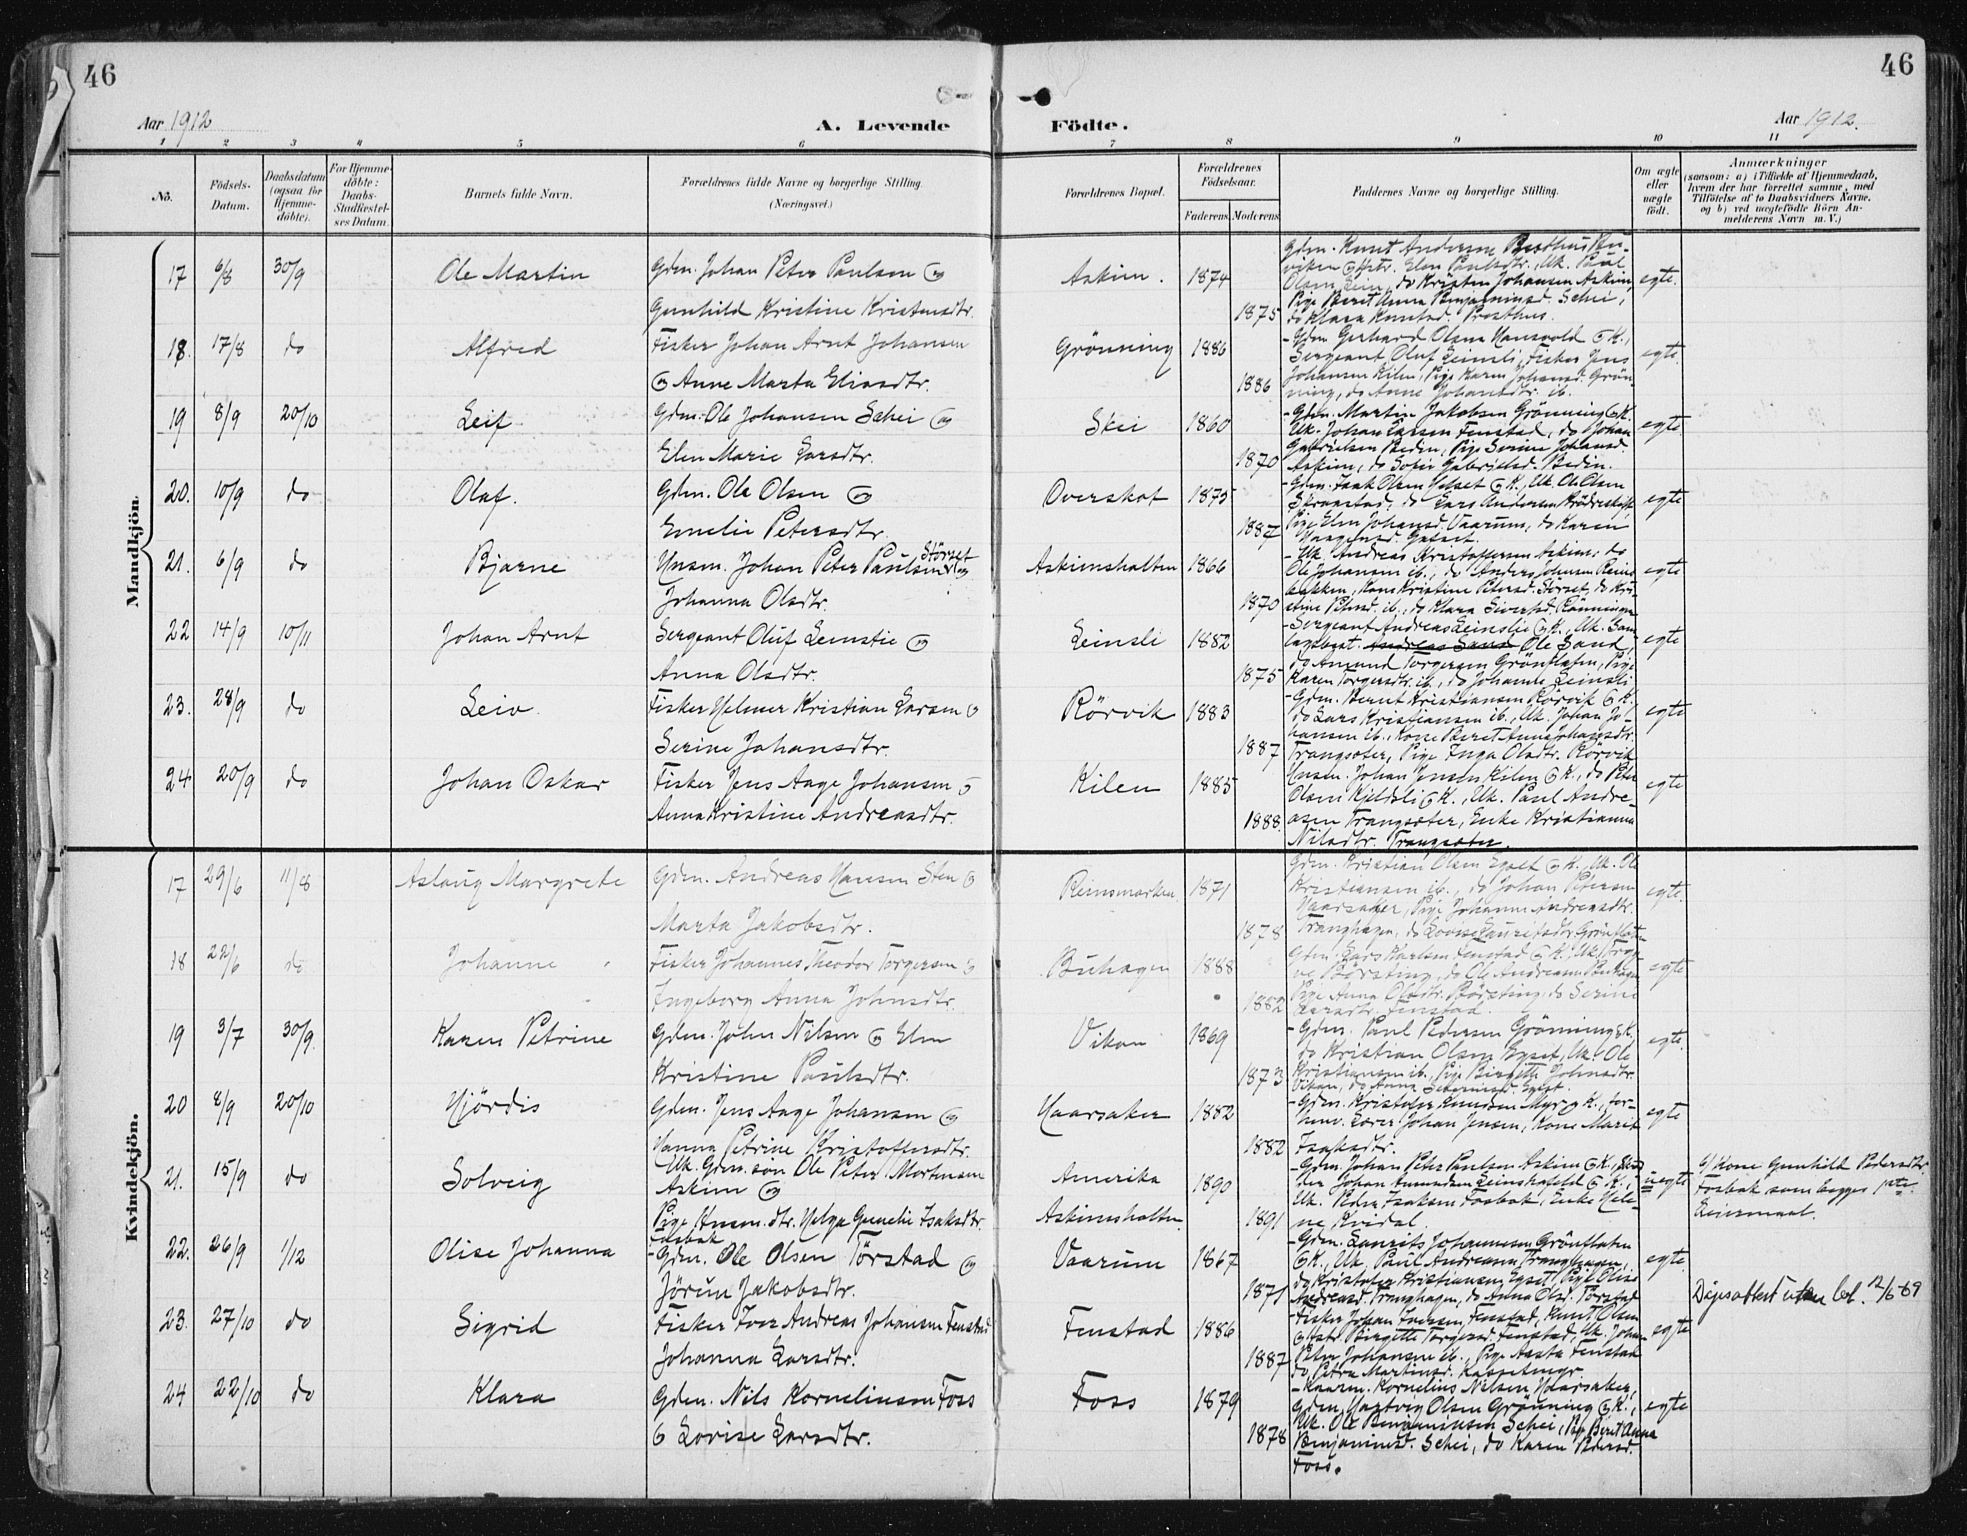 46
46
Aar 1912
A. Levende
Födte.
Aar 1912.
1 2 3 4 5 6 7 8 9 10 11
No.
Födsels-
Datum.
Daabsdatum
(ogsaa for
Hjemme-
döbte).
For Hjemme-
döbte:
Daabs-
Stadfæstel-
ses Datum.
Barnets fulde Navn.
Forældrenes fulde Navne og borgerlige Stilling.
(Næringsvei.)
Forældrenes Bopæl.
Forældrenes
Födselsaar.
Faderens. Moderens.
Faddernes Navne og borgerlige Stilling.
Om ægte
eller
uægte
födt.
Anmærkninger
(saasom: a) i Tilfælde af Hjemmedaab,
hvem der har forrettet samme, med
Tilföielse af to Daabsvidners Navne,
og b) ved uægtefödte Börn An-
melderens Navn m. V.)
Mandkjön.
17 6/8 30/9 Ole Martin Gdm. Johan Peter Paulsen og
Gunhild Kristine Kristensdtr.
Askim. 1874 1875 egte.
Olsen Lein, do Kristen Johansen Askim,
Pige Beret Anna Benjaminsd. Schei,
do Klara Knutsd. Presthus.
18. 17/8 do Alfred Fisker Johan Arnt Johansen
og Anne Marta Eliasdtr.
Grönning 1886 1886 egte.
- Gdm. Gerhard Olsen Hansvold og K.,
Sergeant Oluf Leinsli, Fisker Jens
Johansen Kilen, Pige Karen Johansd. Grön-
ning, do Anne Johansdtr. ib.
19 8/9 20/10 Leif Gdm. Ole Johansen Schei og
Elen Marie Larsdtr.
Skei 1860 1870 egte.
- Gdm. Martin Jakobsen Grönning og K.
Uk. Johan Larsen Fenstad, do Johan
Gabrielsen Bedin, Pige Serine Johansd.
Askim, do Sofie Gabrielsd. Bedin.
20. 10/9 do Olaf. Gdm. Ole Olsen og
Emelie Petersdtr.
Overskot 1875 1887 egte
Pige Elen Johansd. Vaarum, do Karen
21. 6/9 do Bjarne Husm. Johan Peter Paulsen Störset og
Johanna Olsdtr.
Askimsholten 1866 1870 egte
- Uk. Andreas Kristoffersen Askim, do
Ole Johansen ib., do Anders Johnsen Reins-
bakken, Kone Kristine Petersd. Störset, do Kri-
stine Petersd. ib., do Klara Sivertsd. Rönningen
22 14/9 10/11 Johan Arnt Sergeant Oluf Leinslie og
Anna Olsdtr.
Leinsli 1882 1875 egte
- Sergeant Andreas Leinslie og K., Uk. Sam-
lagsbest. Andreas Sand Ole Sand,
do Amund Torgersen Grönflaten, Pige
Karen Torgersdtr. ib., do Johanna Leinsli
23. 28/9 do Leiv Fisker Helmer Kristian Larsen o
Serine Johansdtr.
Rörvik 1883 1887 egte
- Gdm. Bernt Kristiansen Rörvik og K.
do Lars Kristiansen ib., Uk. Johan Jo-
hansen ib., Kone Beret Anna Johansdtr.
Trangsæter, Pige Inga Olsdtr. Rörvik
24 20/9 do Johan Oskar Fisker Jens Aage Johansen o
Anna Kristine Andreasdtr.
Kilen 1885 1888. egte
Husm. Johan Jensen Kilen og K., do Peter
Olsen Kjeldsli og K., Uk. Paul Andre-
asen Trangsæter, Enke Kristianna
Nilsdtr. Trangsæter.
Kvindekjön.
17 29/6 11/8 Aslaug Margrete Gdm. Andreas Hansen Sten og
Marta Jakobsdtr.
Reinsmarken 1871 1878 egte.
Gdm. Kristian Olsen Egset og K., Uk. Ole
Kristiansen ib., do Johan Petersen
Haarsaker, Pige Johanna Andreasdtr.
Tranghagen, do Lovise Lauritsdtr. Grönflaten
18 22/6 do Johanne Fisker Johannes Theodor Torgersen o
Ingeborg Anna Johnsdtr.
Buhagen 1888 1882 egte
Gdm. Lars Karlsen Fenstad og K., Uk. Tryg-
ve Börsting, do Ole Andreasen Buhagen
Pige Anna Olsdtr. Börsting, do Serine
Larsdtr. Fenstad.
19 3/7 30/9. Karen Petrine Gdm. John Nilsen og Elen
Kristine Paulsdtr.
Vikan 1869 1873 egte.
- Gdm. Paul Pedersen Grönning og K.
do Kristian Olsen Egset, Uk. Ole
Kristiansen ib., Pige Birgitte Johnsdtr.
Vikan, do Anna Severinsd. Egset.
20 8/9 20/10 Hjördis Gdm. Jens Aage Johansen og
Hanna Petrine Kristoffersdtr.
Haarsaker 1882 1882 egte
- Gdm. Kristofer Knudsen Myr og K., for-
henv. Lærer Johan Jensen, Kone Marit
Isaksdtr.
21. 15/9 do Solveig Uk. Gdm. søn Ole Peter Mortensen
Askim og
Pige Husm. dtr. Helga Gunelie Isaksdtr.
Fosbak
Amerika 1890
Askimsholten 1891 uegte
- Gdm. Johan Peter Paulsen Askim og K.,
Johan Amundsen Leinshafeld og K.,
Uk. Peder Isaksen Fosbak, Enke Hele-
ne Kvidal.
G/ Kone Gunhild Pedersdtr.
Fosbak som begges 1ste
Leiermaal.
22. 26/9 1/12 Olise Johanna - Gdm. Ole Olsen Törstad og
Jörun Jakobsdtr.
Vaarum 1867 1871 egte.
- Gdm. Laurits Johannesen Grönflaten
og K., Uk. Paul Andreasen Tranghagen,
do Kristofer Kristiansen Egset, Pige Olise
Andreasd. Tranghagen, do Anna Olsd. Törstad
23. 27/10 do Sigrid Fisker Iver Andreas Johansen Fenstad
Johanna Larsdtr.
Fenstad 1886 1887 egte
Fisker Johan Iversen Fenstad, Knut Olsen
og Hstr. Birgitte Torgersd. Fenstad, Uk. Johan
Peter Johansen ib., Pige Aasta Fenstad
do Petra Martinsd. Kasselmyr.
24 22/10 do Klara Gdm. Nils Korneliusen Foss
o Lovise Larsdtr.
Foss 1879 1878 egte
- Kaarm. Kornelius Nilsen Haarsaker,
Gdm. Hartvig Olsen Grönning og K.,
Uk. Ole Benjaminsen Schei, Pige Beret Anna
Benjaminsd. Schei, do Karen Pedersd.
Foss.